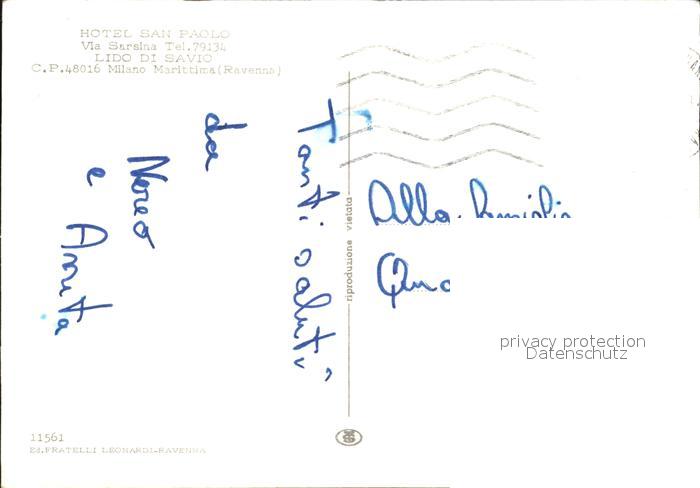 HOTEL SAN PAOLO
Via Sarsina Tel.79134
LIDO DI SAVIO
C.P.48016 Milano Marittima(Ravenna)
Tanti saluti
da
Nereo
e Anita
riproduzione vietata
Alla
privacy protection
Datenschutz
11561
Ed.FRATELLI LEONARDI-RAVENNA